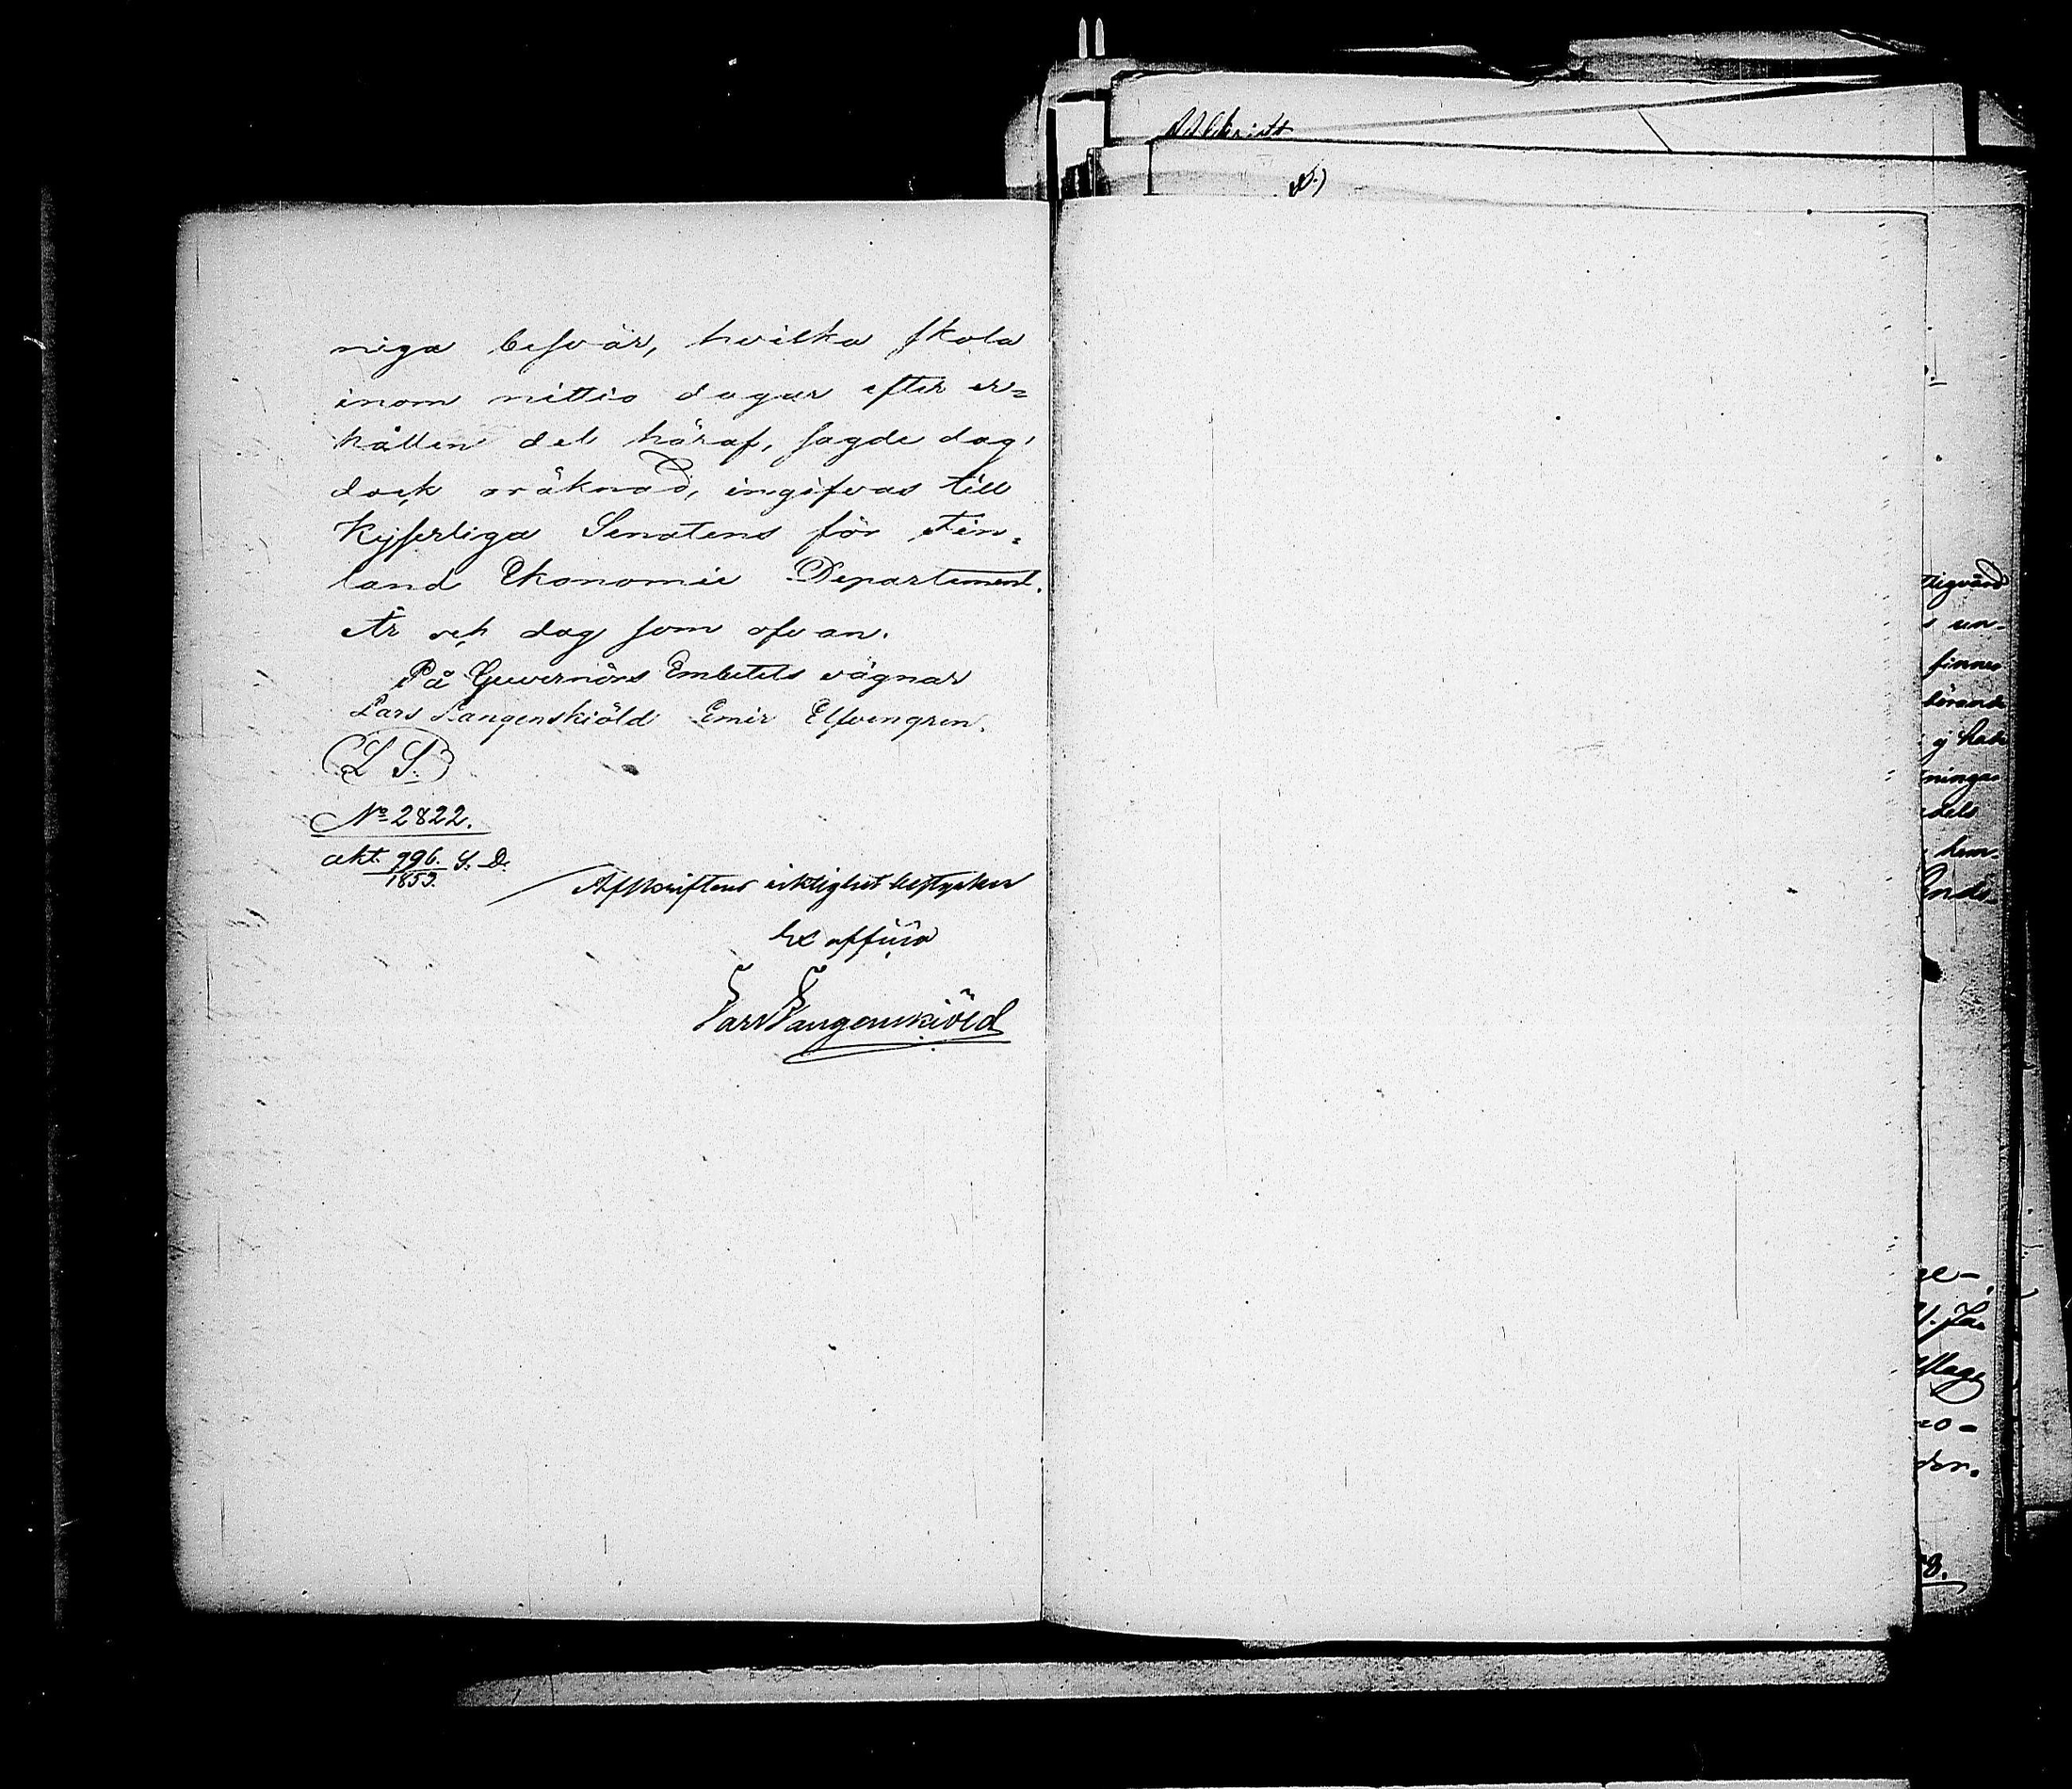 niga besvär, hvilka skola
inom nittio dagar efter er=
hållen del häraf, sagde dag
dock oräknad, ingifvas till
Kejserliga Senatens för Fin=
land Ekonomie Departement.
År och dag som ofvan.
På Guvernörs Embetets vägnar
Lars Langenskiöld Emir Elfvengren.
(L S.)
No 2822.
akt. 996. S. D.
1853.
Afskriftens riktighet bestyrker
Ex officio
Lars Langenskiöld
Afskrift
tigvärd
s un-
finner
börande
ej hat
ningar
dels
hem-
ge-
no-
der.
8.